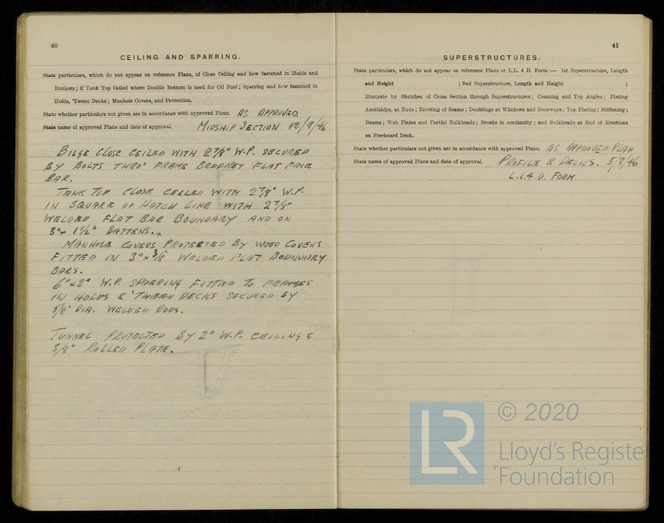 40
CEILING AND SPARRING.
State particulars, which do not appear on reference Plans, of Close Ceiling and how fastened in Holds and
Bunkers; if Tank Top Ceiled where Double Bottom is used for Oil Fuel; Sparring and how fastened in
Holds, 'Tween Decks; Manhole Covers, and Protection.
State whether particulars not given are in accordance with approved Plans. AS APPROVED
State name of approved Plans and date of approval. MIDSHIP SECTION /7/46
BILGE CLOSE CEILED WITH 2⅞" W.P. SECURED
BY BOLTS THRO' FRAME BRACKET FLAT FACE
BAR.
TANK TOP CLOSE CEILED WITH 2⅞" W.P.
IN SQUARE OF HATCH LINE WITH 2⅞"
WELDED FLAT BAR BOUNDARY AND ON
3" x 1½" BATTENS.
MANHOLE COVERS PROTECTED BY WOOD COVERS
FITTED IN 3" x WELDED FLAT BOUNDARY
BARS.
6" x 2" W.P. SPARRING FITTED TO FRAMES
IN HOLDS & 'TWEEN DECKS SECURED BY
⅝" DIA. WELDED RODS.
TUNNEL PROTECTED BY 2" W.P. CEILING &
3/8" ROLLED PLATE.
41
SUPERSTRUCTURES.
State particulars, which do not appear on reference Plans or L.L. 4 D. Form :— 1st Superstructure, Length
and Height ; 2nd Superstructure, Length and Height ;
illustrate by Sketches of Cross Section through Superstructures; Coaming and Top Angles; Plating
Amidships, at Ends; Riveting of Seams; Doublings at Windows and Doorways; Top Plating; Stiffening;
Beams; Web Plates and Partial Bulkheads; Breaks in continuity; and Bulkheads at End of Erections
on Freeboard Deck.
State whether particulars not given are in accordance with approved Plans. AS APPROVED PLAN
State name of approved Plans and date of approval. PROFILE & DECKS. 5/7/46
L.L. 4. D. FORM
© 2020
LR
Lloyd's Register
Foundation